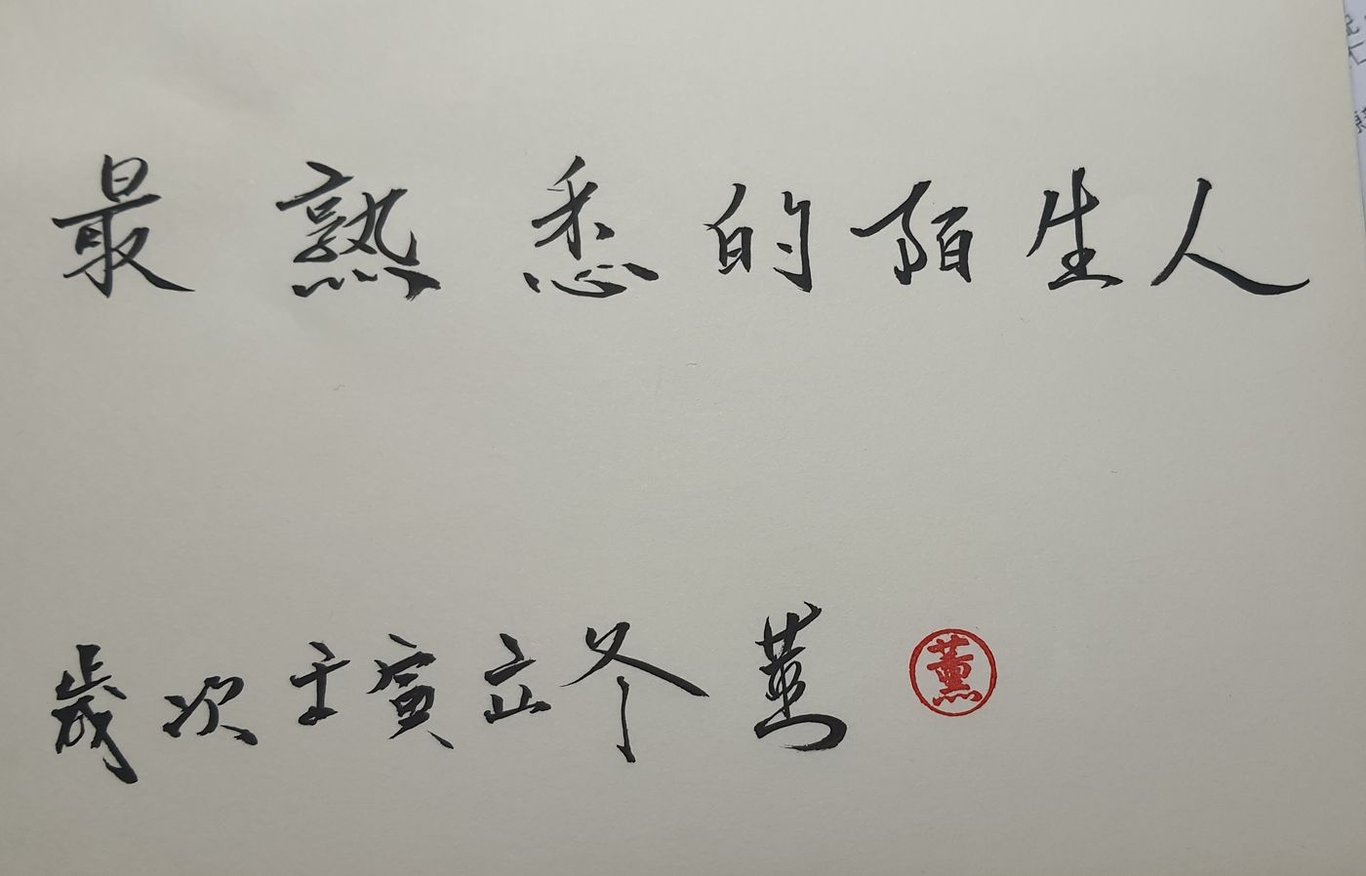 最熟悉的陌生人
歲次壬寅立冬 薰 薰